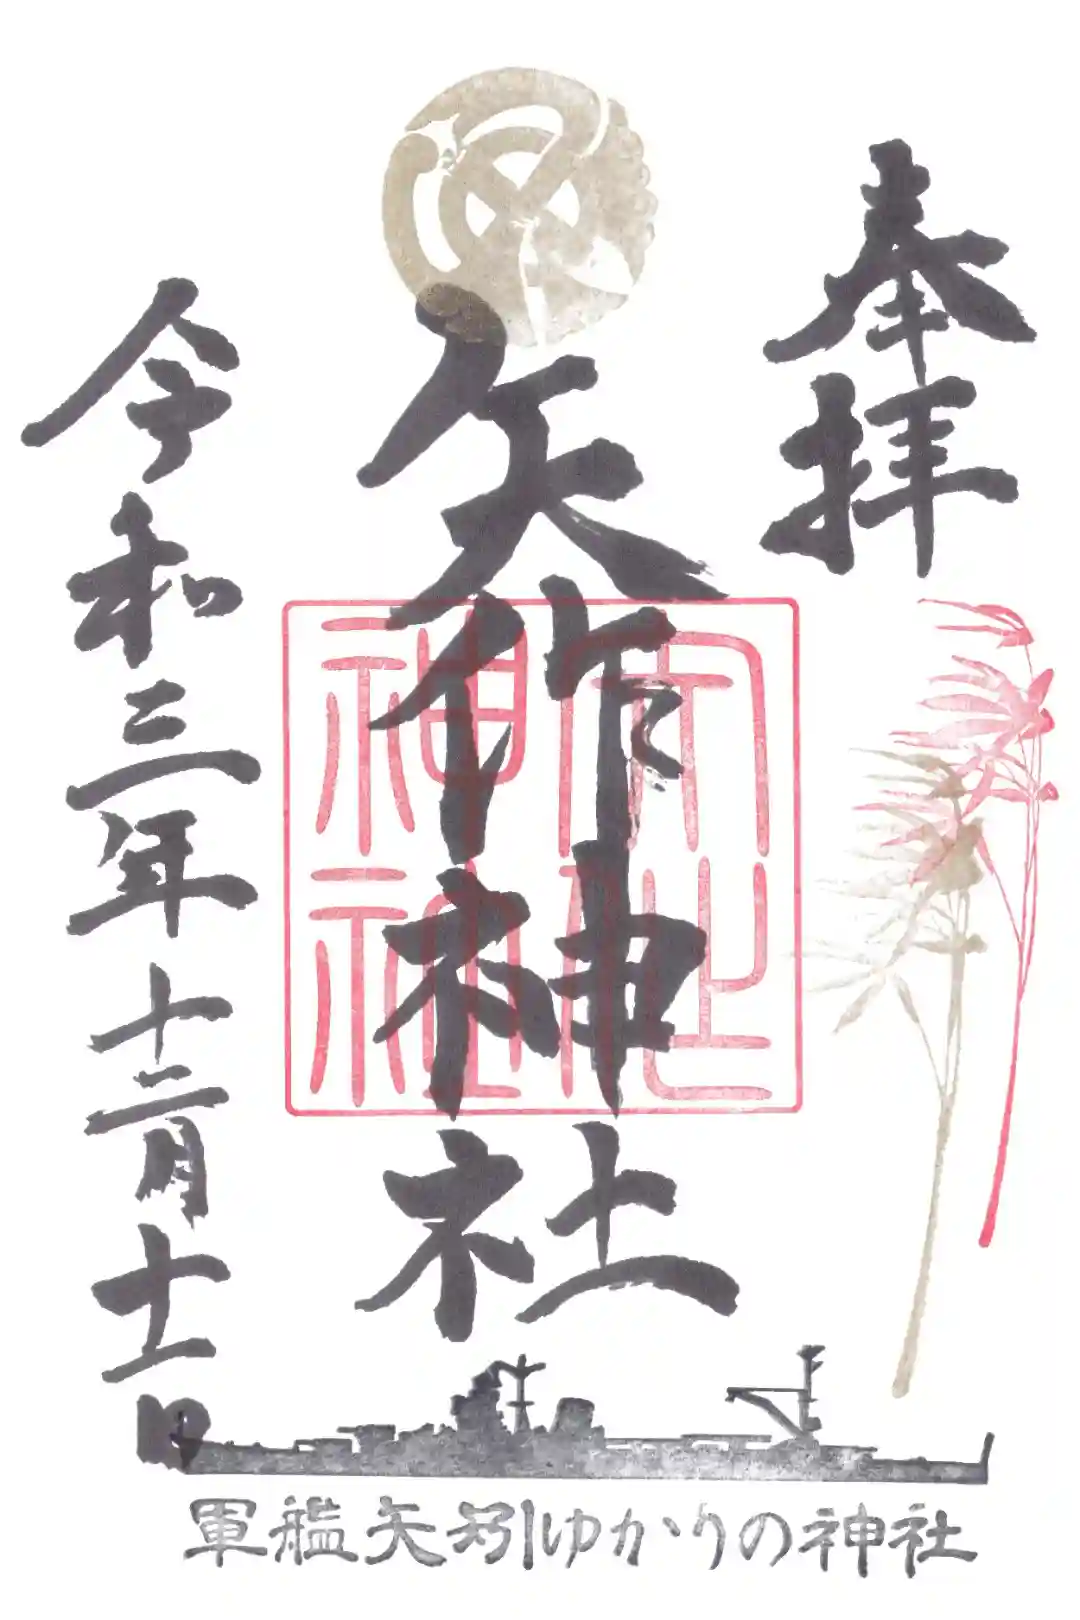 奉拝
矢作神社
矢作神社
令和三年十二月十一日
軍艦矢矧ゆかりの神社